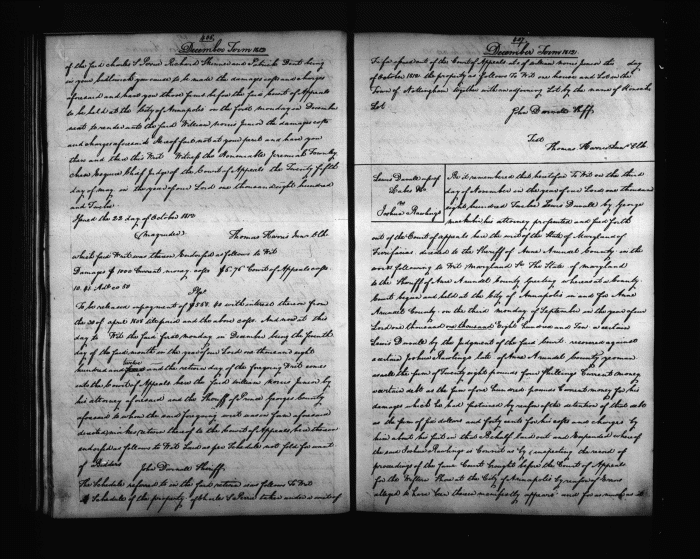 606
December Term 1812
of the said Charles S Peirce Richard Skinner and Patrick Dent being
in your bailiwick you cause to be made the damages costs and charges
aforesaid and have you those sums before the said Court of Appeals
to be held at the City of Annapolis on the first monday in December
next to render unto the said William Norris Junior the damages costs
and charges aforesaid Hereof fail not at your peril and have you
then and there this Writ Witness the Honorable Jeremiah Townley
Chase Esquire Chief Judge of the Court of Appeals the Twenty fifth
day of may in the year of our Lord one thousand eight hundred
and Twelve
Issued the 22 day of October 1812
(Magruder) Thomas Harris Junr Clk
which said Writ was thereon Endorsed as follows to Wit
Damages $ 1000 Current money costs $5.76 Court of Appeals costs
To be released on payment of $558. 40 with interest thereon from
the 20 of april 1808 till paid and the above costs And now at this
day to Wit the said first monday in December being the seventh
day of the said month in the year of our Lord one thousand eight
hundred and twelve and the return day of the foregoing Writ comes
into the Court of Appeals here the said William Norris Junior by
his attorney aforesaid and the Sheriff of Prince Georges County
aforesaid to whom the said foregoing writ was in form aforesaid
directed makes return thereof to the Court of Appeals here thereon
endorsed as follows to Wit Laid as per Schedule not sold for want
of Bidders
John Darnall Sheriff
The Schedule referred to in the said return is as follows To Wit
A Schedule of the property of Charles S Peirce taken under a writ of
607
December Term 1812
Fi fa issued out of the Court of Appeals at suit of William Norris Junior this day
of October 1812 the property as follows To Wit one house and Lot in the
Town of Nottingham together with an adjoining Lot by the name of
Lot
John Darnall Shff.
Test
Thomas Harris Junr Clk
Lewis Duvall use of
vs
Joshua Rawlings
Be it remembered that heretofore To Wit on the third
day of November in the year of our Lord one thousand
eight hundred Twelve Lewis Duvall by George
his attorney prosecuted and sued forth
out of the Court of appeals here the writ of the State of Maryland of
Scirefacias directed to the Sheriff of Anne Arundel County in the
words following to Wit Maryland Sc. The State of maryland
to the Sheriff of Anne Arundel County Greeting whereas at a County
Court begun and held at the City of Annapolis in and for Anne
Arundel County on the third monday of September in the year of our
Lord one thousand one thousand Eight hundred and Ten a certain
Lewis Duvall by the Judgment of the said Court recovered against
a certain Joshua Rawlings late of Anne Arundel County yeoman
as well the sum of Twenty eight pounds four shillings Current money
a certain debt as the sum of one hundred pounds Current money for his
damages which he had sustained by reason of the detention of that debt
as the sum of six dollars and forty cents for his costs and charges by
him about his suit in that Behalf laid out and Expended whereof
the said Joshua Rawlings is Convict as by inspecting the record of
proceedings of the same Court brought before the Court of Appeals
for the Western Shore at the City of Annapolis by reason of Errors
alleged to have been therein manifestly appears and for as much as it